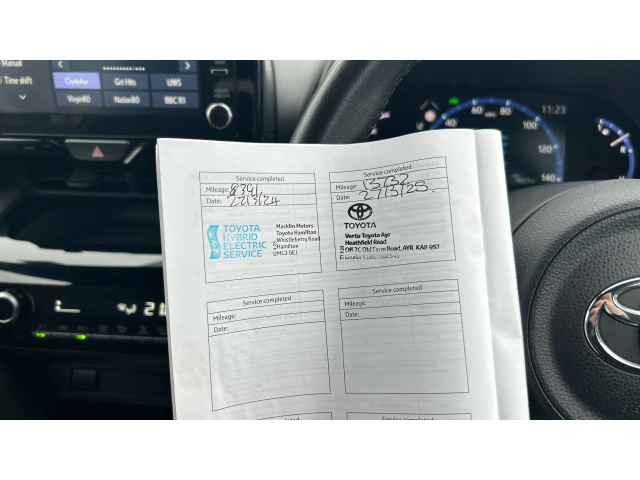 Manual
Time shift
ClydeAyr
Grt Hits
UWS
Virgin80
Nation80
BBC R1
60
80
100
40
120
20
140
11:23
21
Service completed
Mileage: 8391
Date: 22/3/24
TOYOTA
HYBRID
ELECTRIC
SERVICE
Macklin Motors
Toyota Hamilton
Whistleberry Road
Hamilton
ML3 0EJ
Service completed
Mileage: 13732
Date: 27/3/25.
TOYOTA
Vertu Toyota Ayr
Heathfield Road
Off 7C Old Toom Road, AYR KA8 9ST
Dealer Code:
Service completed
Mileage:
Date:
Service completed
Mileage:
Date:
Service completed
Service completed